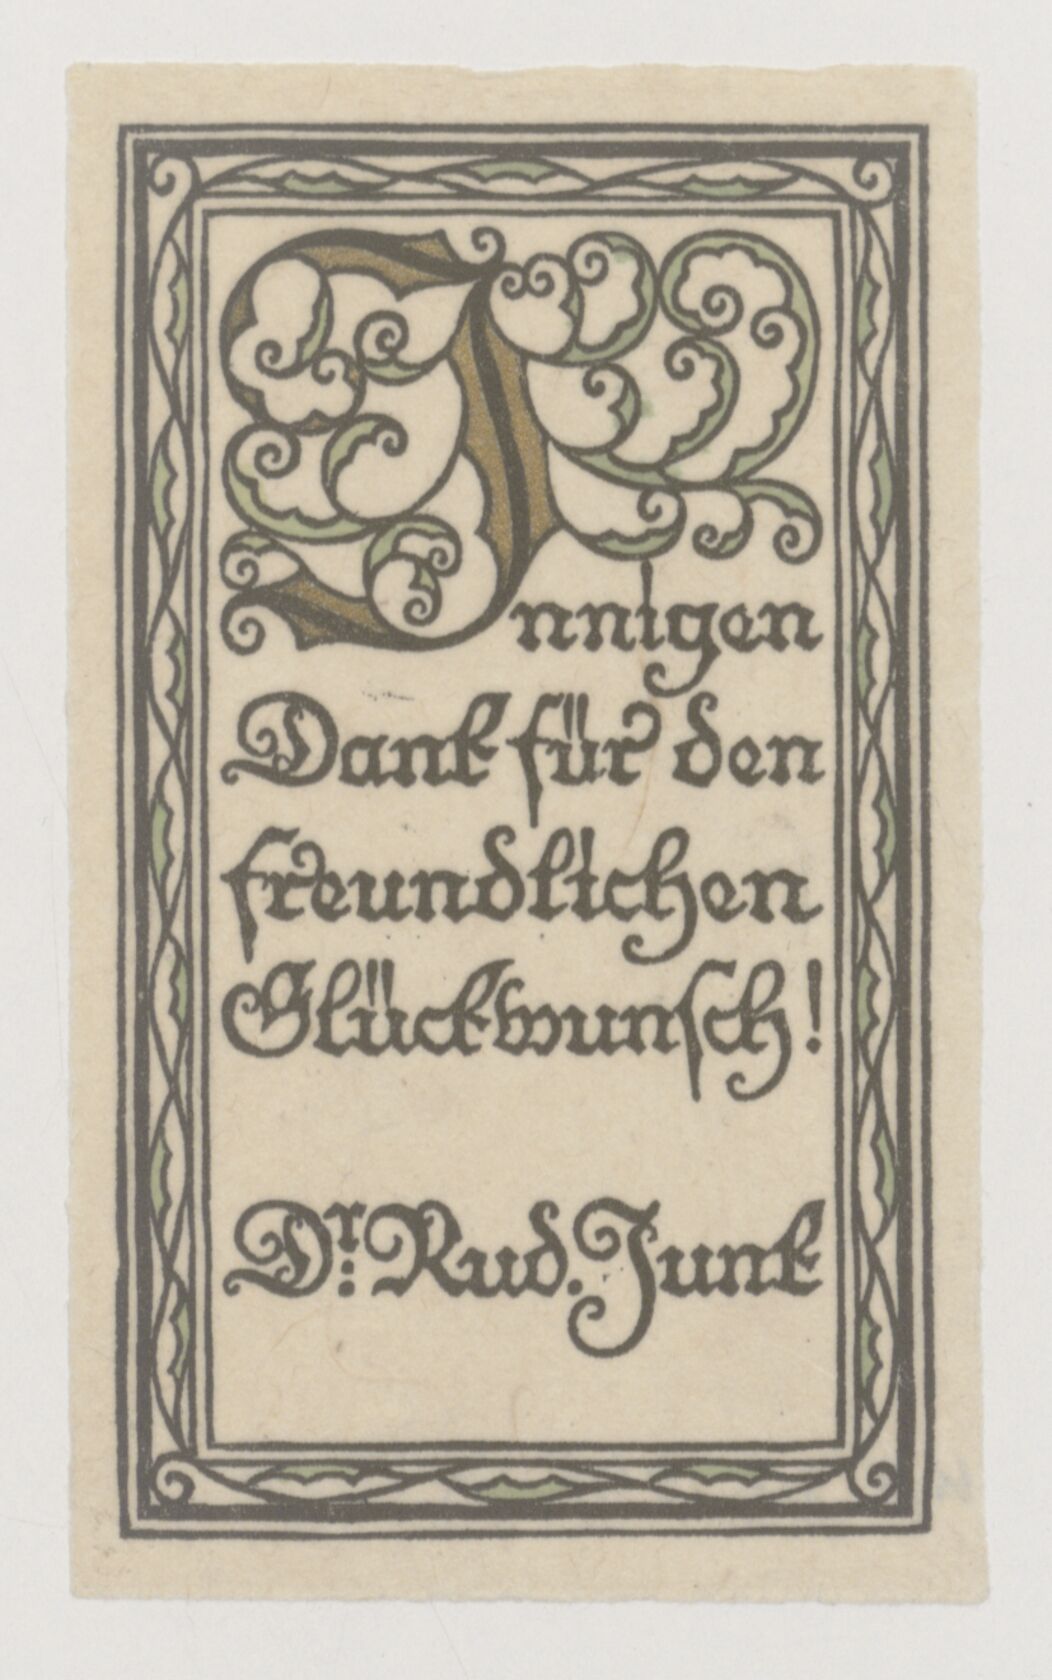 Innigen
Dank für den
freundlichen
Glückwunsch!
Dr. Rud. Junk